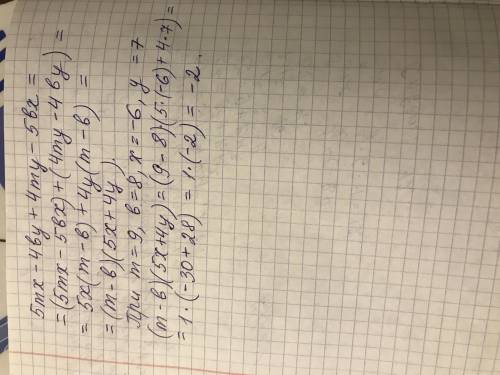 5mx - 4вy + 4my - 5вx =
= (5mx - 5вx) + (4my - 4вy) =
= 5x(m - в) + 4y(m - в) =
= (m - в)(5x + 4y).
При m = 9, в = 8, x = -6, y = 7
(m - в)(5x + 4y) = (9 - 8)(5·(-6) + 4·7) =
= 1·(-30 + 28) = 1·(-2) = -2.